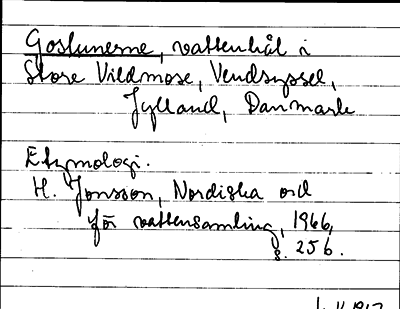 Goslunerne, vattenhål i
Store Vildmose, Vendsyssel,
Jylland, Danmark
Etymologi.
H. Jonsson, Nordiska ord
för vattensamling, 1966,
s. 256.